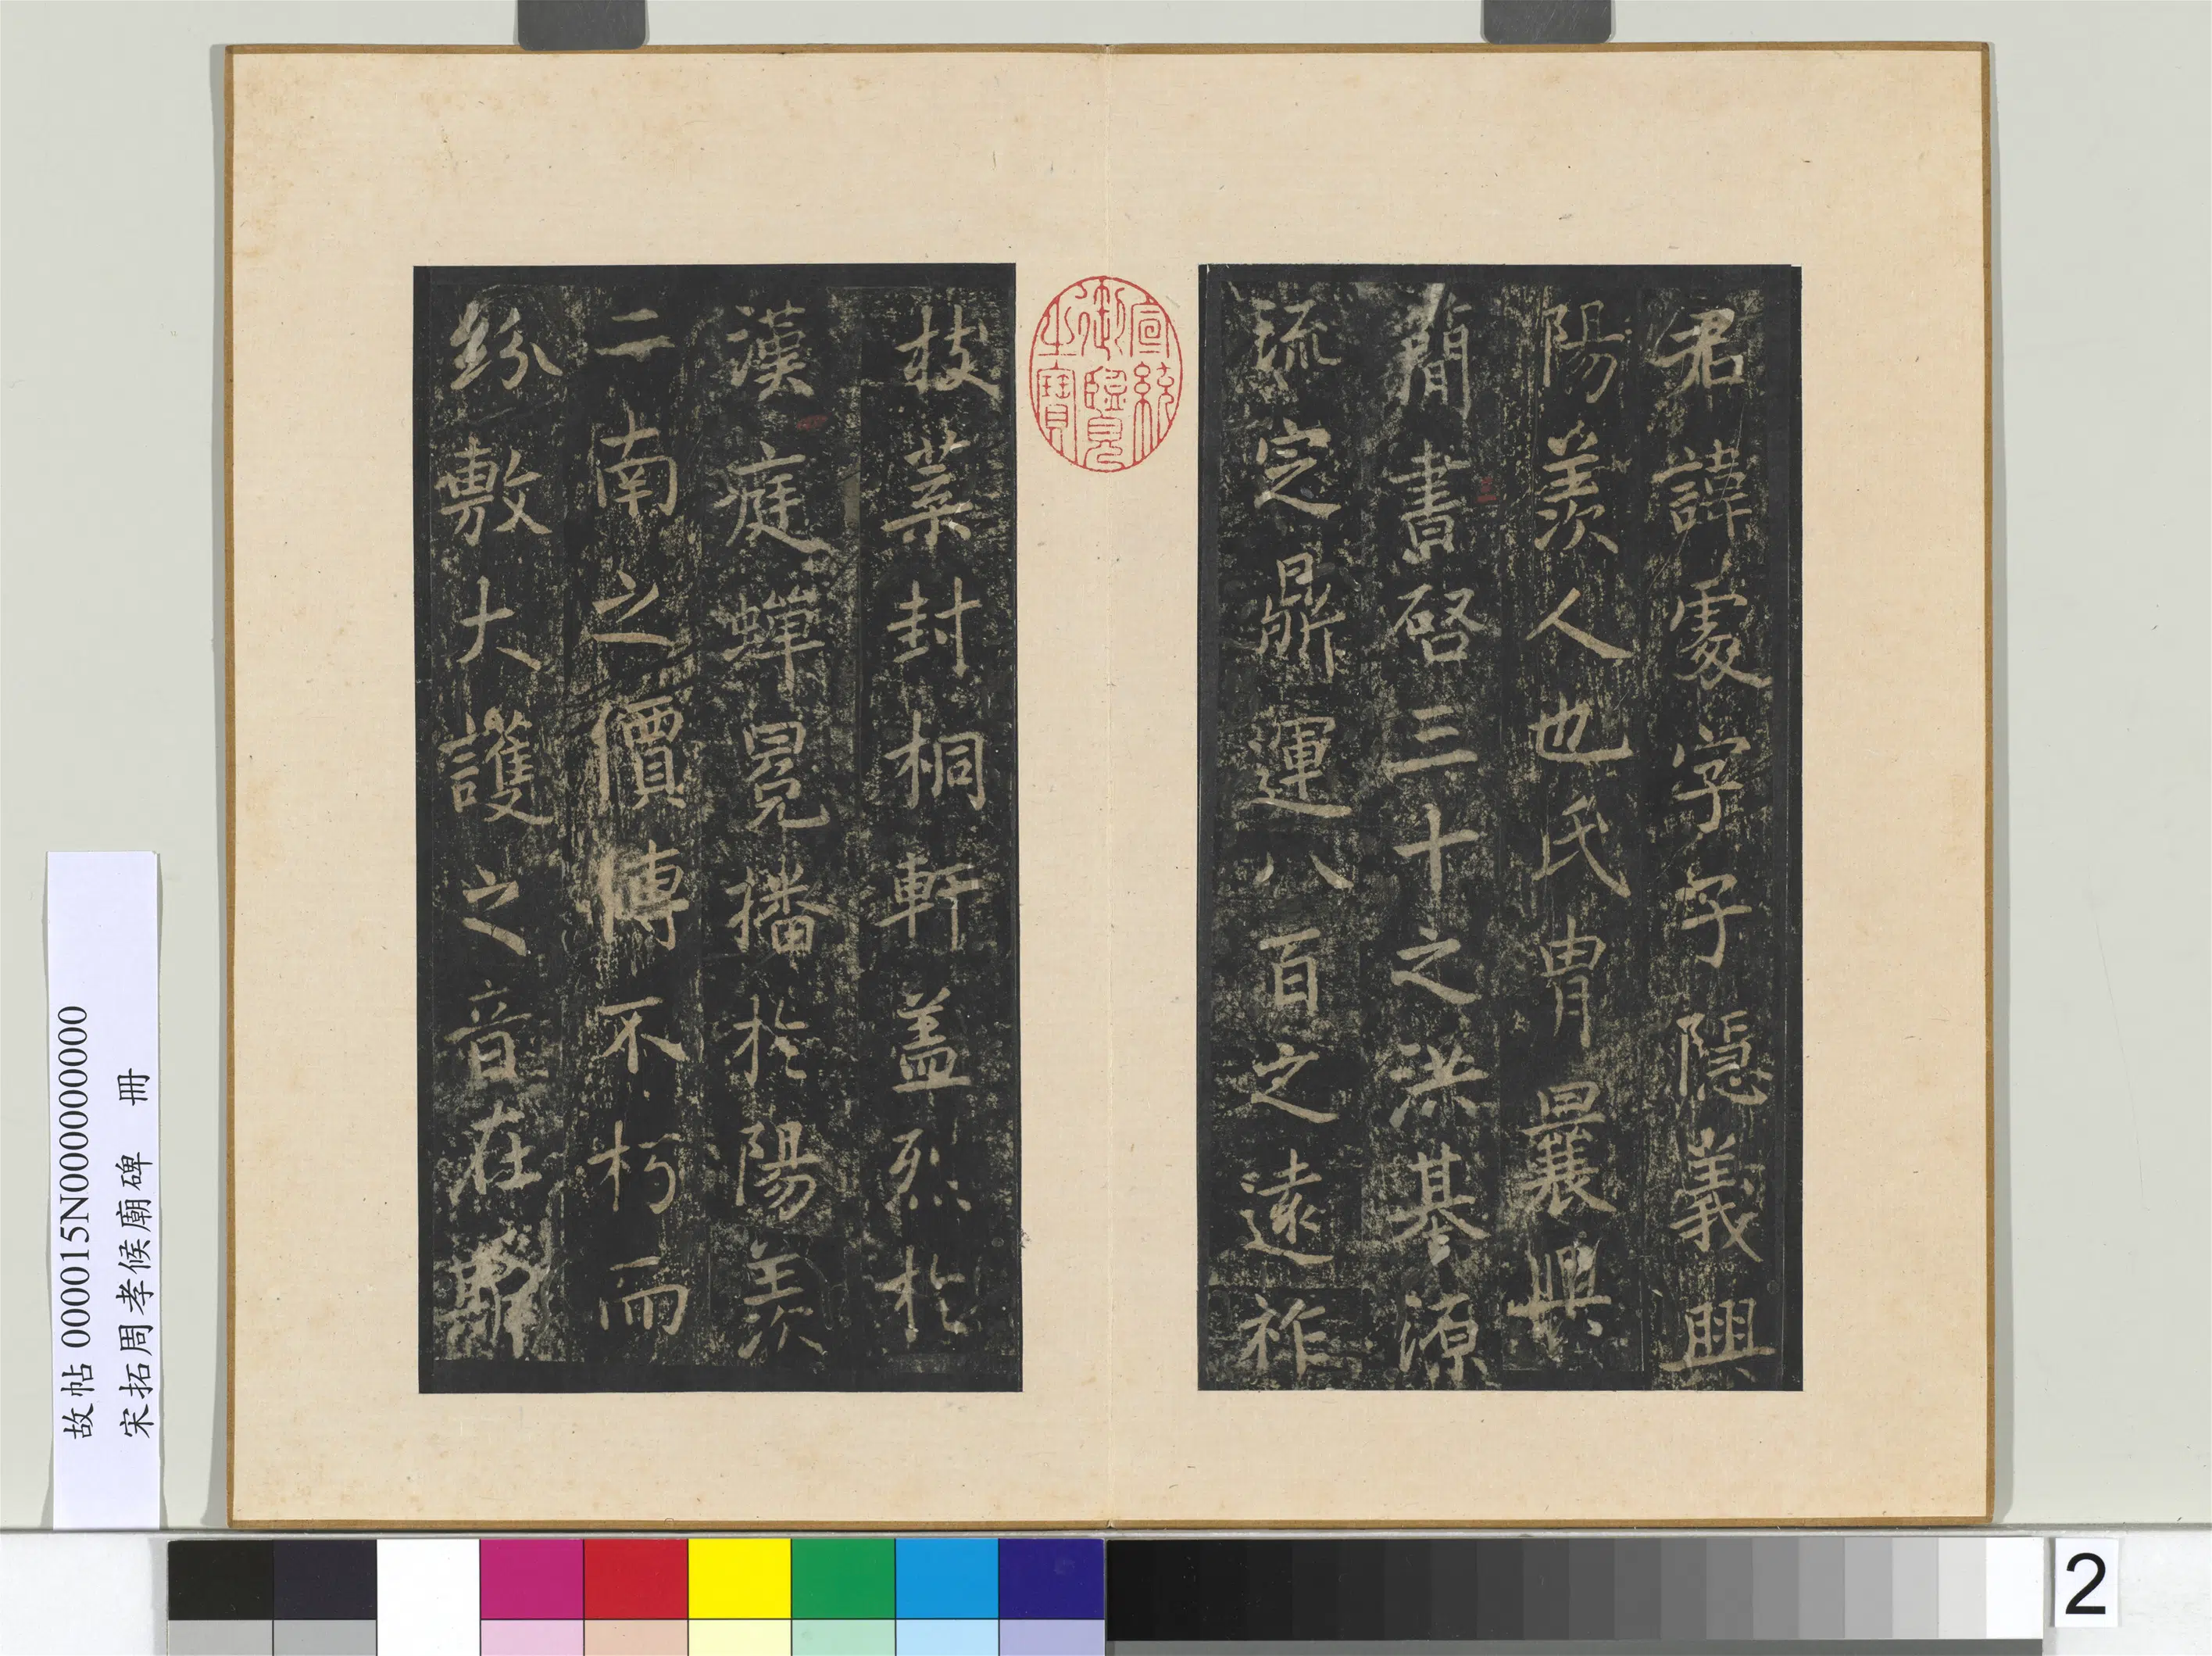 君諱處字子隱義興
陽羨人也氏冑曩興
簡書啓三十之洪基源
流定鼎運八百之遠祚
枝葉封桐軒盖烈於
漢庭蟬冕播於陽羨
二南之價傳不朽而
紛敷大護之音在
宣統
御覽
之寶
故帖 000015N000000000
宋拓周孝候廟碑 冊
2